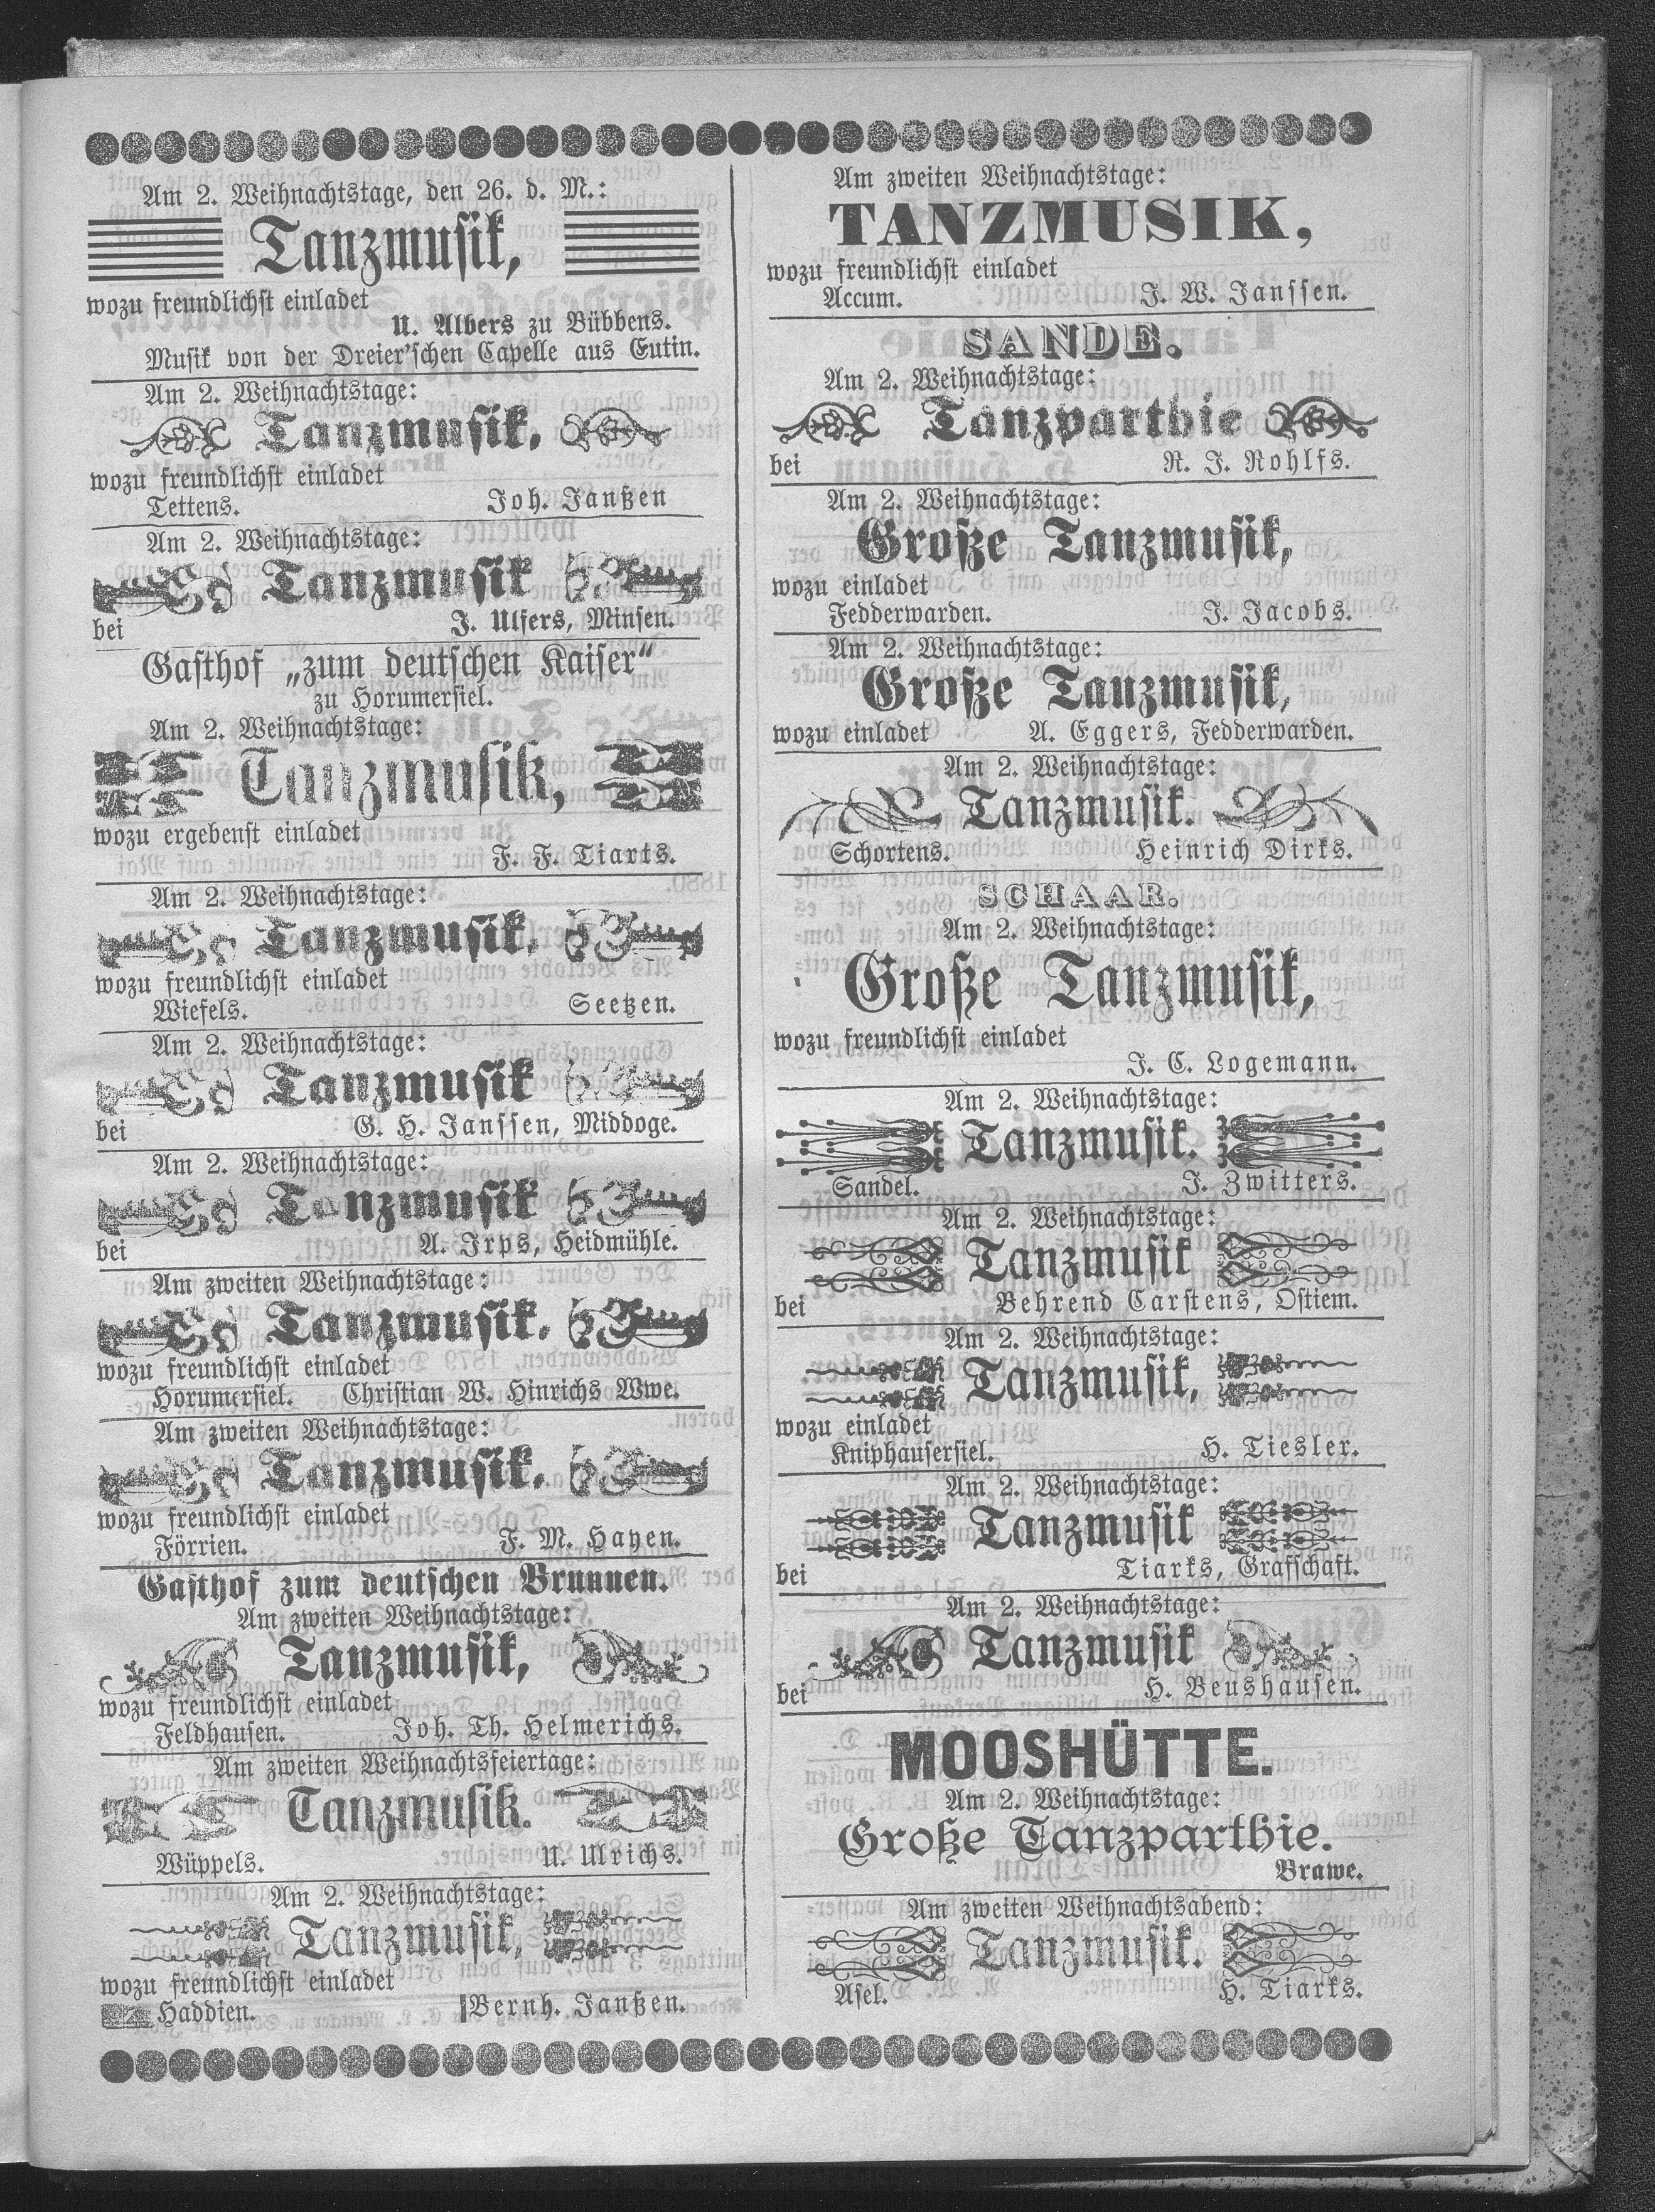 Am 2. Weihnachtstage, den 26. d. M.:
Tanzmusik,
wozu freundlichst einladet
U. Albers zu Bübbens.
Musik von der Dreier'schen Capelle aus Eutin.
Am 2. Weihnachtstage:
Tanzmusik,
wozu freundlichst einladet
Tettens. Joh. Janßen
Am 2. Weihnachtstage:
Tanzmusik
bei J. Ulfers, Minsen.
Gasthof „zum deutschen Kaiser“
zu Horumersiel.
Am 2. Weihnachtstage:
Tanzmusik,
wozu ergebenst einladet
F. F. Tiarts.
Am 2. Weihnachtstage:
Tanzmusik,
wozu freundlichst einladet
Wiefels. Seetzen.
Am 2. Weihnachtstage:
Tanzmusik
bei G. H. Janssen, Middoge.
Am 2. Weihnachtstage:
Tanzmusik
bei A. Irps, Heidmühle.
Am zweiten Weihnachtstage:
Tanzmusik,
wozu freundlichst einladet
Horumersiel. Christian W. Hinrichs Wwe.
Am zweiten Weihnachtstage:
Tanzmusik,
wozu freundlichst einladet
Förrien. F. M. Hayen.
Gasthof zum deutschen Brunnen.
Am zweiten Weihnachtstage:
Tanzmusik,
wozu freundlichst einladet
Feldhausen. Joh. Th. Helmerichs.
Am zweiten Weihnachtsfeiertage:
Tanzmusik.
Wüppels. U. Ulrichs.
Am 2. Weihnachtstage:
Tanzmusik,
wozu freundlichst einladet
Haddien. Bernh. Janßen.
Am zweiten Weihnachtstage:
TANZMUSIK,
wozu freundlichst einladet
Accum. J. W. Janssen.
SANDE.
Am 2. Weihnachtstage:
Tanzparthie
bei R. J. Rohlfs.
Am 2. Weihnachtstage:
Große Tanzmusik,
wozu einladet
Fedderwarden. J. Jacobs.
Am 2. Weihnachtstage:
Große Tanzmusik,
wozu einladet A. Eggers, Fedderwarden.
Am 2. Weihnachtstage:
Tanzmusik.
Schortens. Heinrich Dirks.
SCHAAR.
Am 2. Weihnachtstage:
Große Tanzmusik,
wozu freundlichst einladet
J. C. Logemann.
Am 2. Weihnachtstage:
Tanzmusik.
Sandel. J. Zwitters.
Am 2. Weihnachtstage:
Tanzmusik
bei Behrend Carstens, Ostiem.
Am 2. Weihnachtstage:
Tanzmusik,
wozu einladet
Kniphausersiel. H. Tiesler.
Am 2. Weihnachtstage:
Tanzmusik
bei Tiarks, Grafschaft.
Am 2. Weihnachtstage:
Tanzmusik
bei H. Beushausen.
MOOSHÜTTE.
Am 2. Weihnachtstage:
Große Tanzparthie.
Brawe.
Am zweiten Weihnachtsabend:
Tanzmusik.
Asel. H. Tiarks.